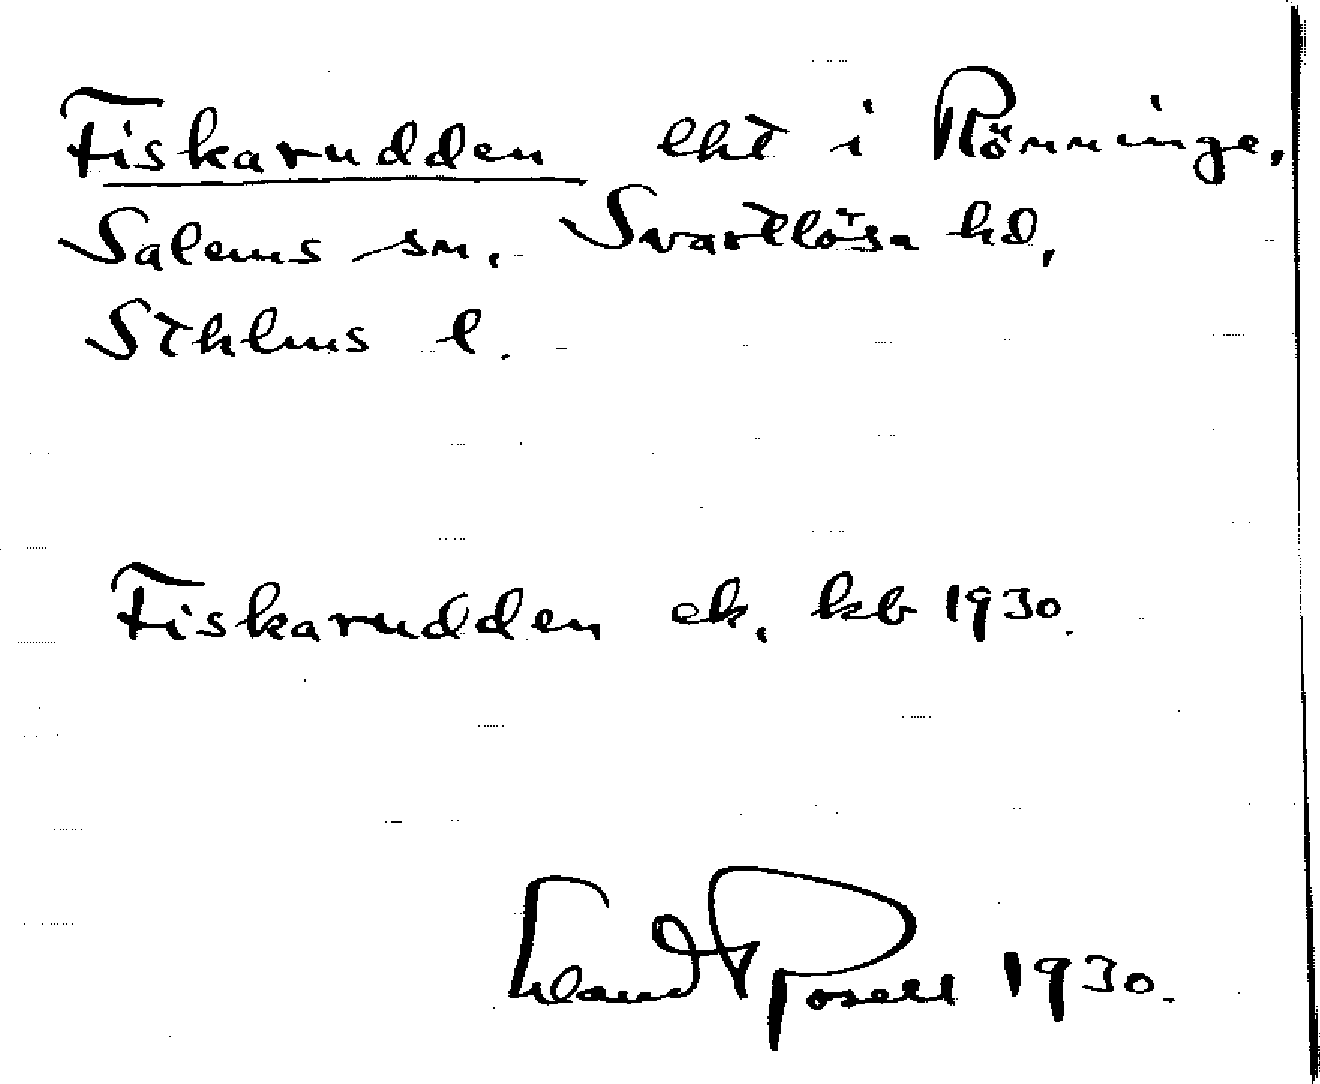 Fiskarudden lht i Rönninge,
Salems sn, Svartlösa hd,
Sthlms l.
Fiskarudden ek. kb 1930.
Erland Rosell 1930.